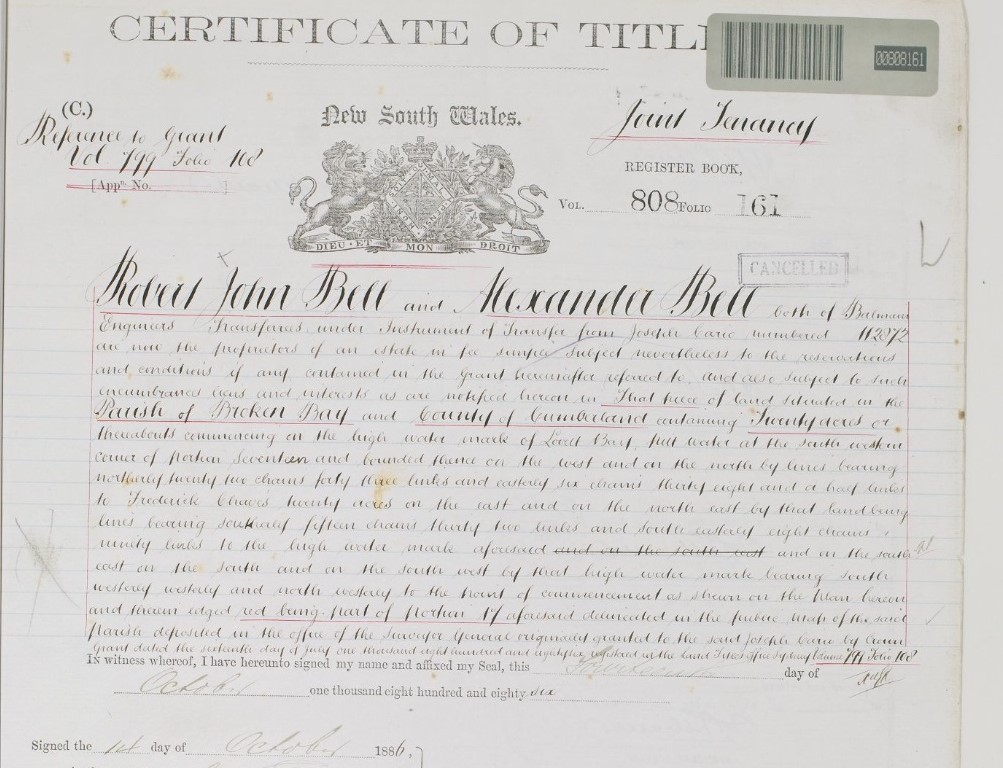 CERTIFICATE OF TITL
00808161
(C.)
Reference to Grant
Vol 799 Folio 108
[Appn. No. ]
New South Wales.
DIEU ET MON DROIT
Joint Tenancy
REGISTER BOOK,
VOL. 808 FOLIO 161
CANCELLED
Robert John Bell and Alexander Bell both of Balmain
Engineers Transferees under Instrument of Transfer from Joseph Cario numbered 112872
are now the proprietors of an estate in fee simple Subject nevertheless to the reservations
and conditions if any contained in the Grant hereinafter referred to, and also subject to such
encumbrances liens and interests as are notified hereon in That piece of land situated in the
Parish of Broken Bay and County of Cumberland containing Twenty acres or
thereabouts commencing on the high water mark of Lovett Bay, Pitt water at the south western
corner of portion Seventeen and bounded thence on the west and on the north by lines bearing
northerly twenty two chains forty three links and easterly six chains thirty eight and a half links
to Frederick Chave's twenty acres on the east and on the north east by that land being
lines bearing southerly fifteen chains thirty two links and south easterly eight chains
ninety links to the high water mark aforesaid and on the south east and on the south
east on the south and on the south west by that high water mark bearing south
westerly westerly and north westerly to the point of commencement as shewn on the plan hereon
and therein edged red being part of portion 17 aforesaid delineated in the public map of the said
parish deposited in the office of the Surveyor General originally granted to the said Joseph Cario by Crown
Grant dated the sixteenth day of July one thousand eight hundred and eighty six registered in the Land Titles Office Sydney Volume 799 Folio 108
In witness whereof, I have hereunto signed my name and affixed my Seal, this day of
October one thousand eight hundred and eighty six
Signed the 1st day of October 1886,